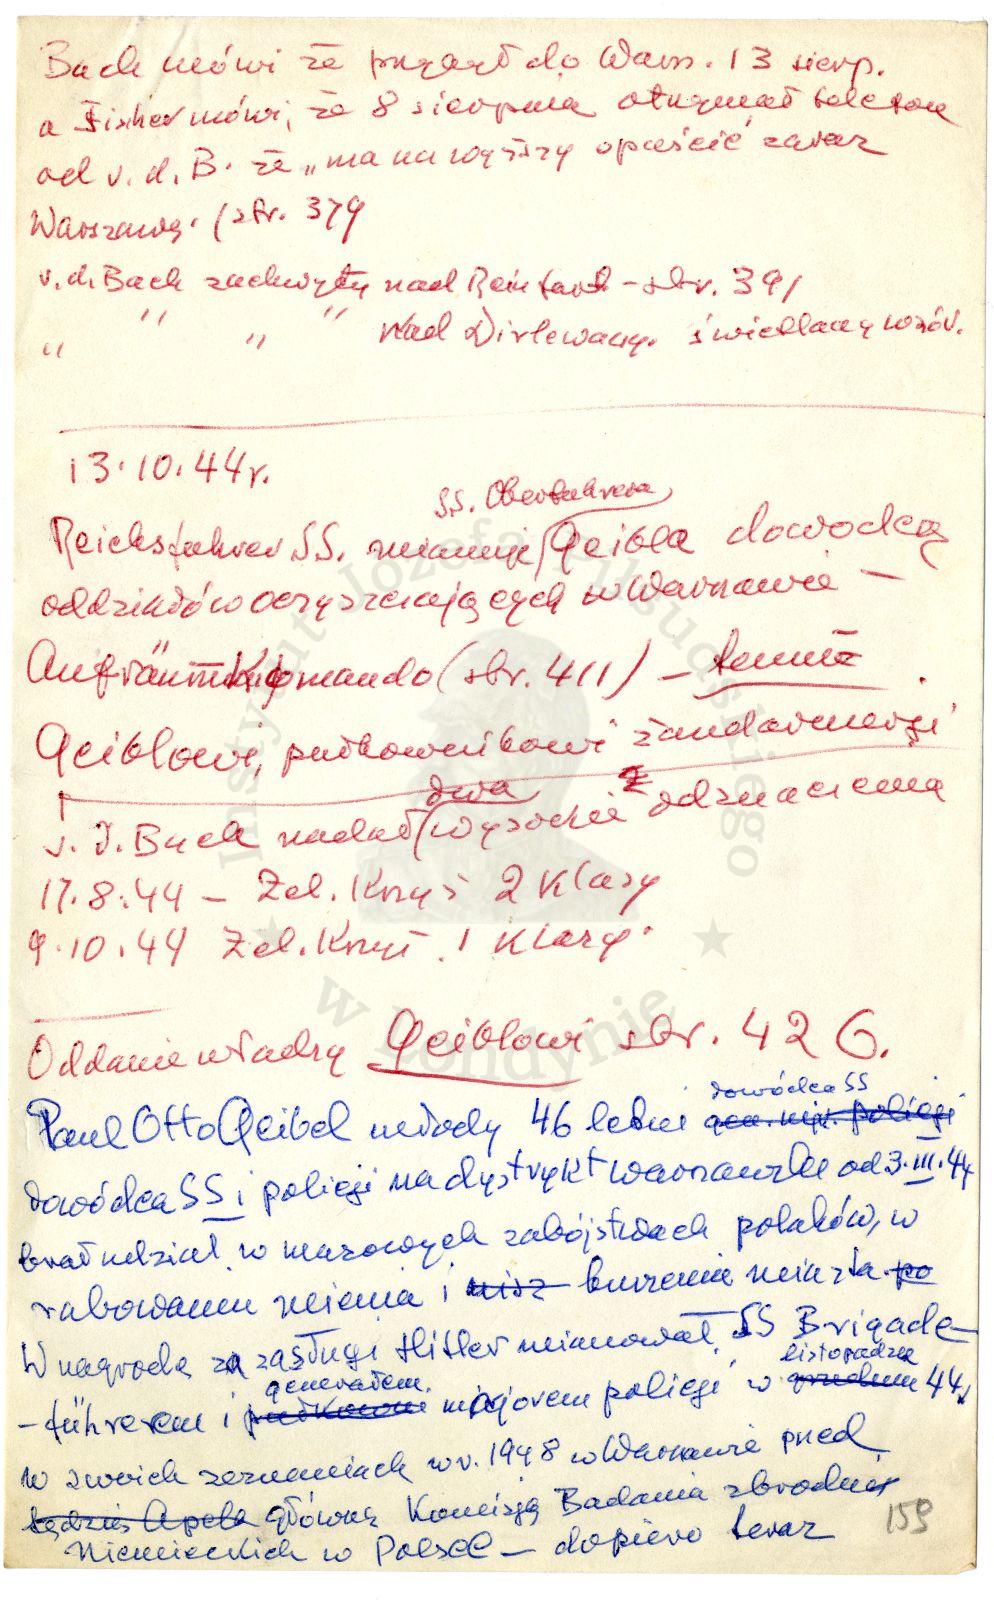 Bach mówi że przyjął do Warsz. 13 sierp.
a Fischer mówi, że 8 sierpnia otrzymał telefon
od v. d. B. że „ma na wyższy opuścić zaraz
Warszawę. (str. 379
v. d. Bach zachwyty nad Reinfard - str. 391
" " " " nad Dirlewang. świetlany wzór.
13.10.44 r.
SS. Oberfuhrera
Reichsfuhrer SS. mianuje Geibla dowódcą
oddziałów oczyszczających w Warszawie —
Aufräumkommando (str. 411) - temuż
Geiblowi, pułkownikowi żandarmerji
dwa
v. d. Bach nadał wysokie odznaczenia
17.8.44 - Żel. Krzyż 2 klasy
9.10.44 Żel. Krzyż 1 klasy.
Oddanie władzy Geiblowi str. 426.
dowódca SS
Paul Otto Geibel młody 46 letni gen. maj. policji
dowódca SS i policji na dystrykt warszawski od 3.III.44
brał udział w masowych zabójstwach polaków, w
rabowaniu mienia i nisz burzeniu miasta. po
W nagrodę za zasługi Hitler mianował SS Brigade-
generałem listopadzie
-führerem i pułkowni majorem policji w grudniu 44 r.
w swoich zeznaniach w r. 1948 w Warszawie przed
sędzią Apela główną Komisją Badania zbrodni
Niemieckich w Polsce - dopiero teraz
159
Instytut Józefa Piłsudskiego
w Londynie